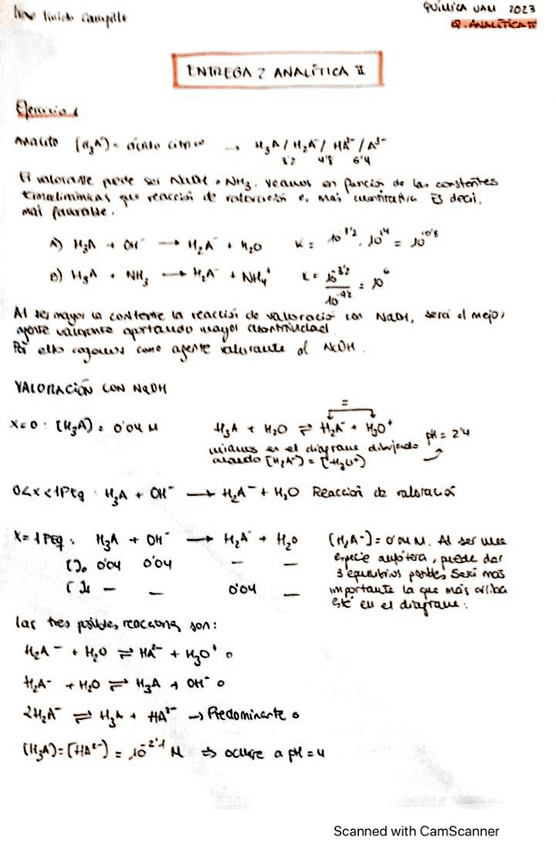 QUÍMICA UAM 2023
Q. ANALÍTICA II
ENTREGA 2 ANALÍTICA II
Ejercicio 1
Analito [H3A] = ácido cítrico → H3A / H2A⁻ / HA²⁻ / A³⁻
3'2 4'8 6'4
El valorante puede ser NaOH o NH3. Veamos en función de las constantes
termodinámicas que reacción de valoración es más cuantitativa. Es decir,
más favorable.
A) H3A + OH⁻ → H2A⁻ + H2O K = 10⁻³'² · 10¹⁴ = 10¹⁰'⁸
B) H3A + NH3 → H2A⁻ + NH4⁺ K = 10⁻³'² / 10⁻⁹'² = 10⁶
Al ser mayor la constante la reacción de valoración con NaOH, será el mejor
agente valorante aportando mayor cuantitividad.
Por ello cogemos como agente valorante al NaOH.
VALORACIÓN CON NaOH
X=0 : [H3A] = 0'04 M H3A + H2O ⇌ H2A⁻ + H3O⁺
=
miramos en el diagrama dibujado pH = 2'4
cuando [H2A⁻] = [H3O⁺]
0<x<1Peq : H3A + OH⁻ → H2A⁻ + H2O Reacción de valoración
X=1Peq : H3A + OH⁻ → H2A⁻ + H2O [H2A⁻] = 0'04 M. Al ser una
[ ]o 0'04 0'04 — — especie anfótera, puede dar
3 equilibrios posibles. Será más
[ ]f — — 0'04 importante la que más arriba
esté en el diagrama:
Las tres posibles reacciones son:
H2A⁻ + H2O ⇌ HA²⁻ + H3O⁺ o
H2A⁻ + H2O ⇌ H3A + OH⁻ o
2H2A⁻ ⇌ H3A + HA²⁻ → Predominante o
[H3A] = [HA²⁻] = 10⁻²'¹ M ⇒ ocurre a pH = 4
Scanned with CamScanner